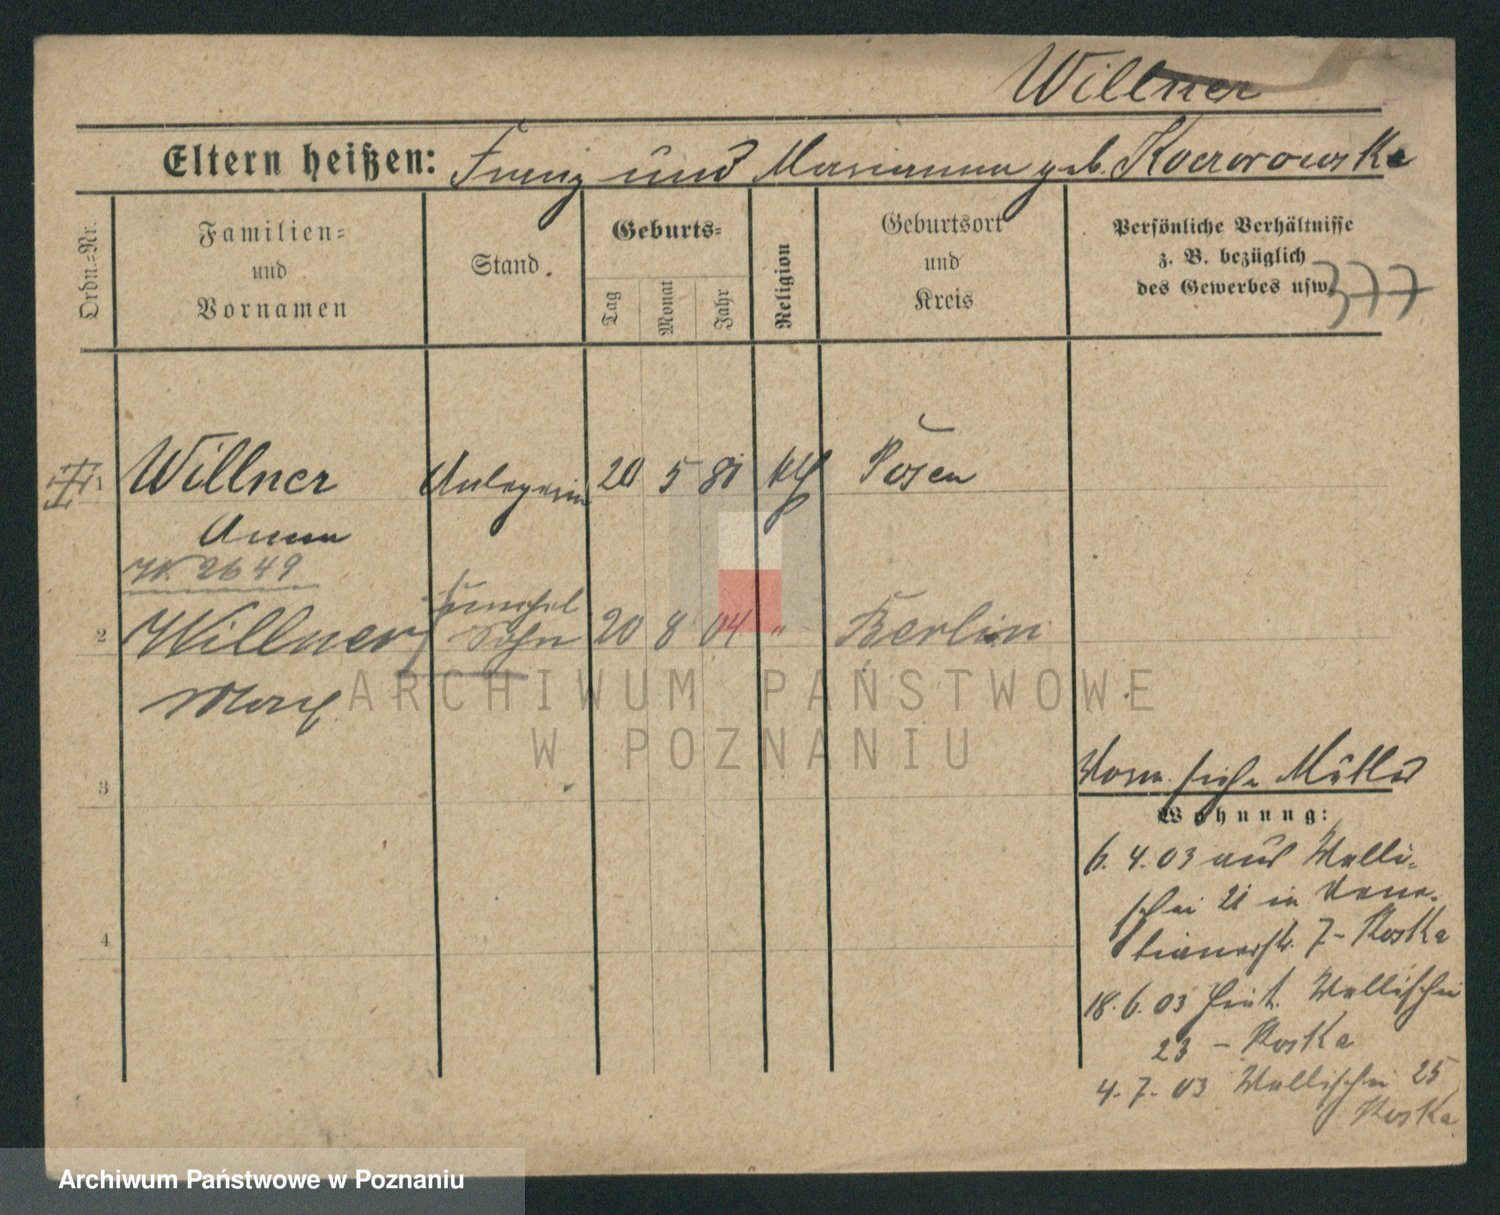 Willner
Eltern heißen: Franz und Marianna geb. Kaczorowska
Ordn.=Nr.
Familien=
und
Vornamen
Stand.
Geburts=
Tag
Monat
Jahr
Religion
Geburtsort
und
Kreis
Persönliche Verhältnisse
z. B. bezüglich
des Gewerbes usw.
377
1 Willner Anlegerin 20 5 81 kth Posen
Anna
W. 2649
unehel
2 Willner Sohn 20 8 04 " Berlin
Max
3
Vorm. siehe
Wohnung:
6. 4. 03 aus Walli-
schei 21 in Vene-
tianerstr. 7 - Roska
18. 6. 03 Wallischei
23 - Roska
4. 7. 03 Wallischei 25
Roska
4
ARCHIWUM PAŃSTWOWE
W POZNANIU
Archiwum Państwowe w Poznaniu